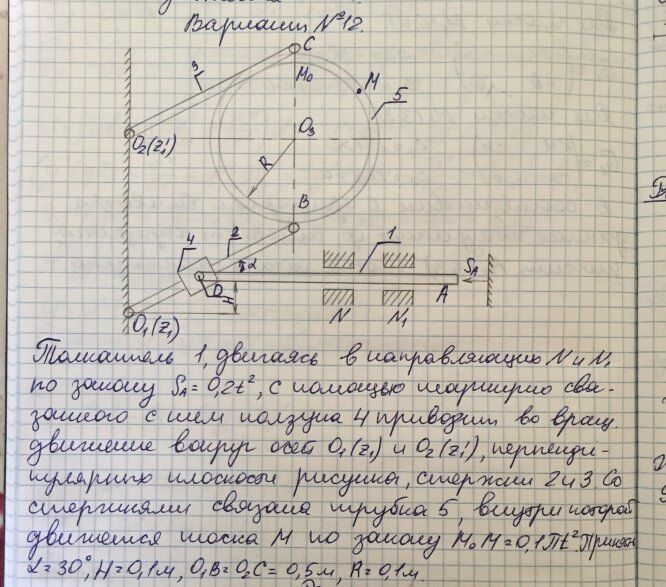 Вариант №12.
C
3
M₀
M
5
O₂(z₁')
O₃
R
B
4
2
1
α
S_A
O
H
A
O₁(z₁)
N
N₁
Толкатель 1, двигаясь в направляющих N и N₁
по закону S_A = 0,2t², с помощью шарнирно свя-
занного с ним ползуна 4 приводит во вращ.
движение вокруг осей O₁(z₁) и O₂(z₁'), перпенди-
кулярных плоскости рисунка, стержни 2 и 3. Со
стержнями связана трубка 5, внутри которой
движется точка M по закону M₀M = 0,1πt². При
α = 30°, H = 0,1м, O₁B = O₂C = 0,5м, R = 0,1м.